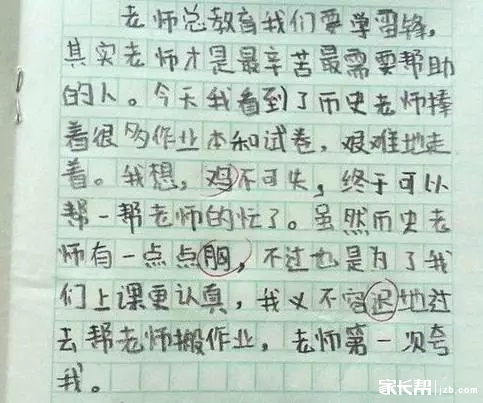 老师总教育我们要学雷锋,
其实老师才是最辛苦最需要帮助
的人。今天我看到了历史老师捧
着很多作业本和试卷,艰难地走
着。我想,鸡不可失,终于可以
帮一帮老师的忙了。虽然历史老
师有一点点胸,不过也是为了我
们上课更认真,我义不容迟地过
去帮老师搬作业,老师第一次夸
我。
家长帮 jzb.com